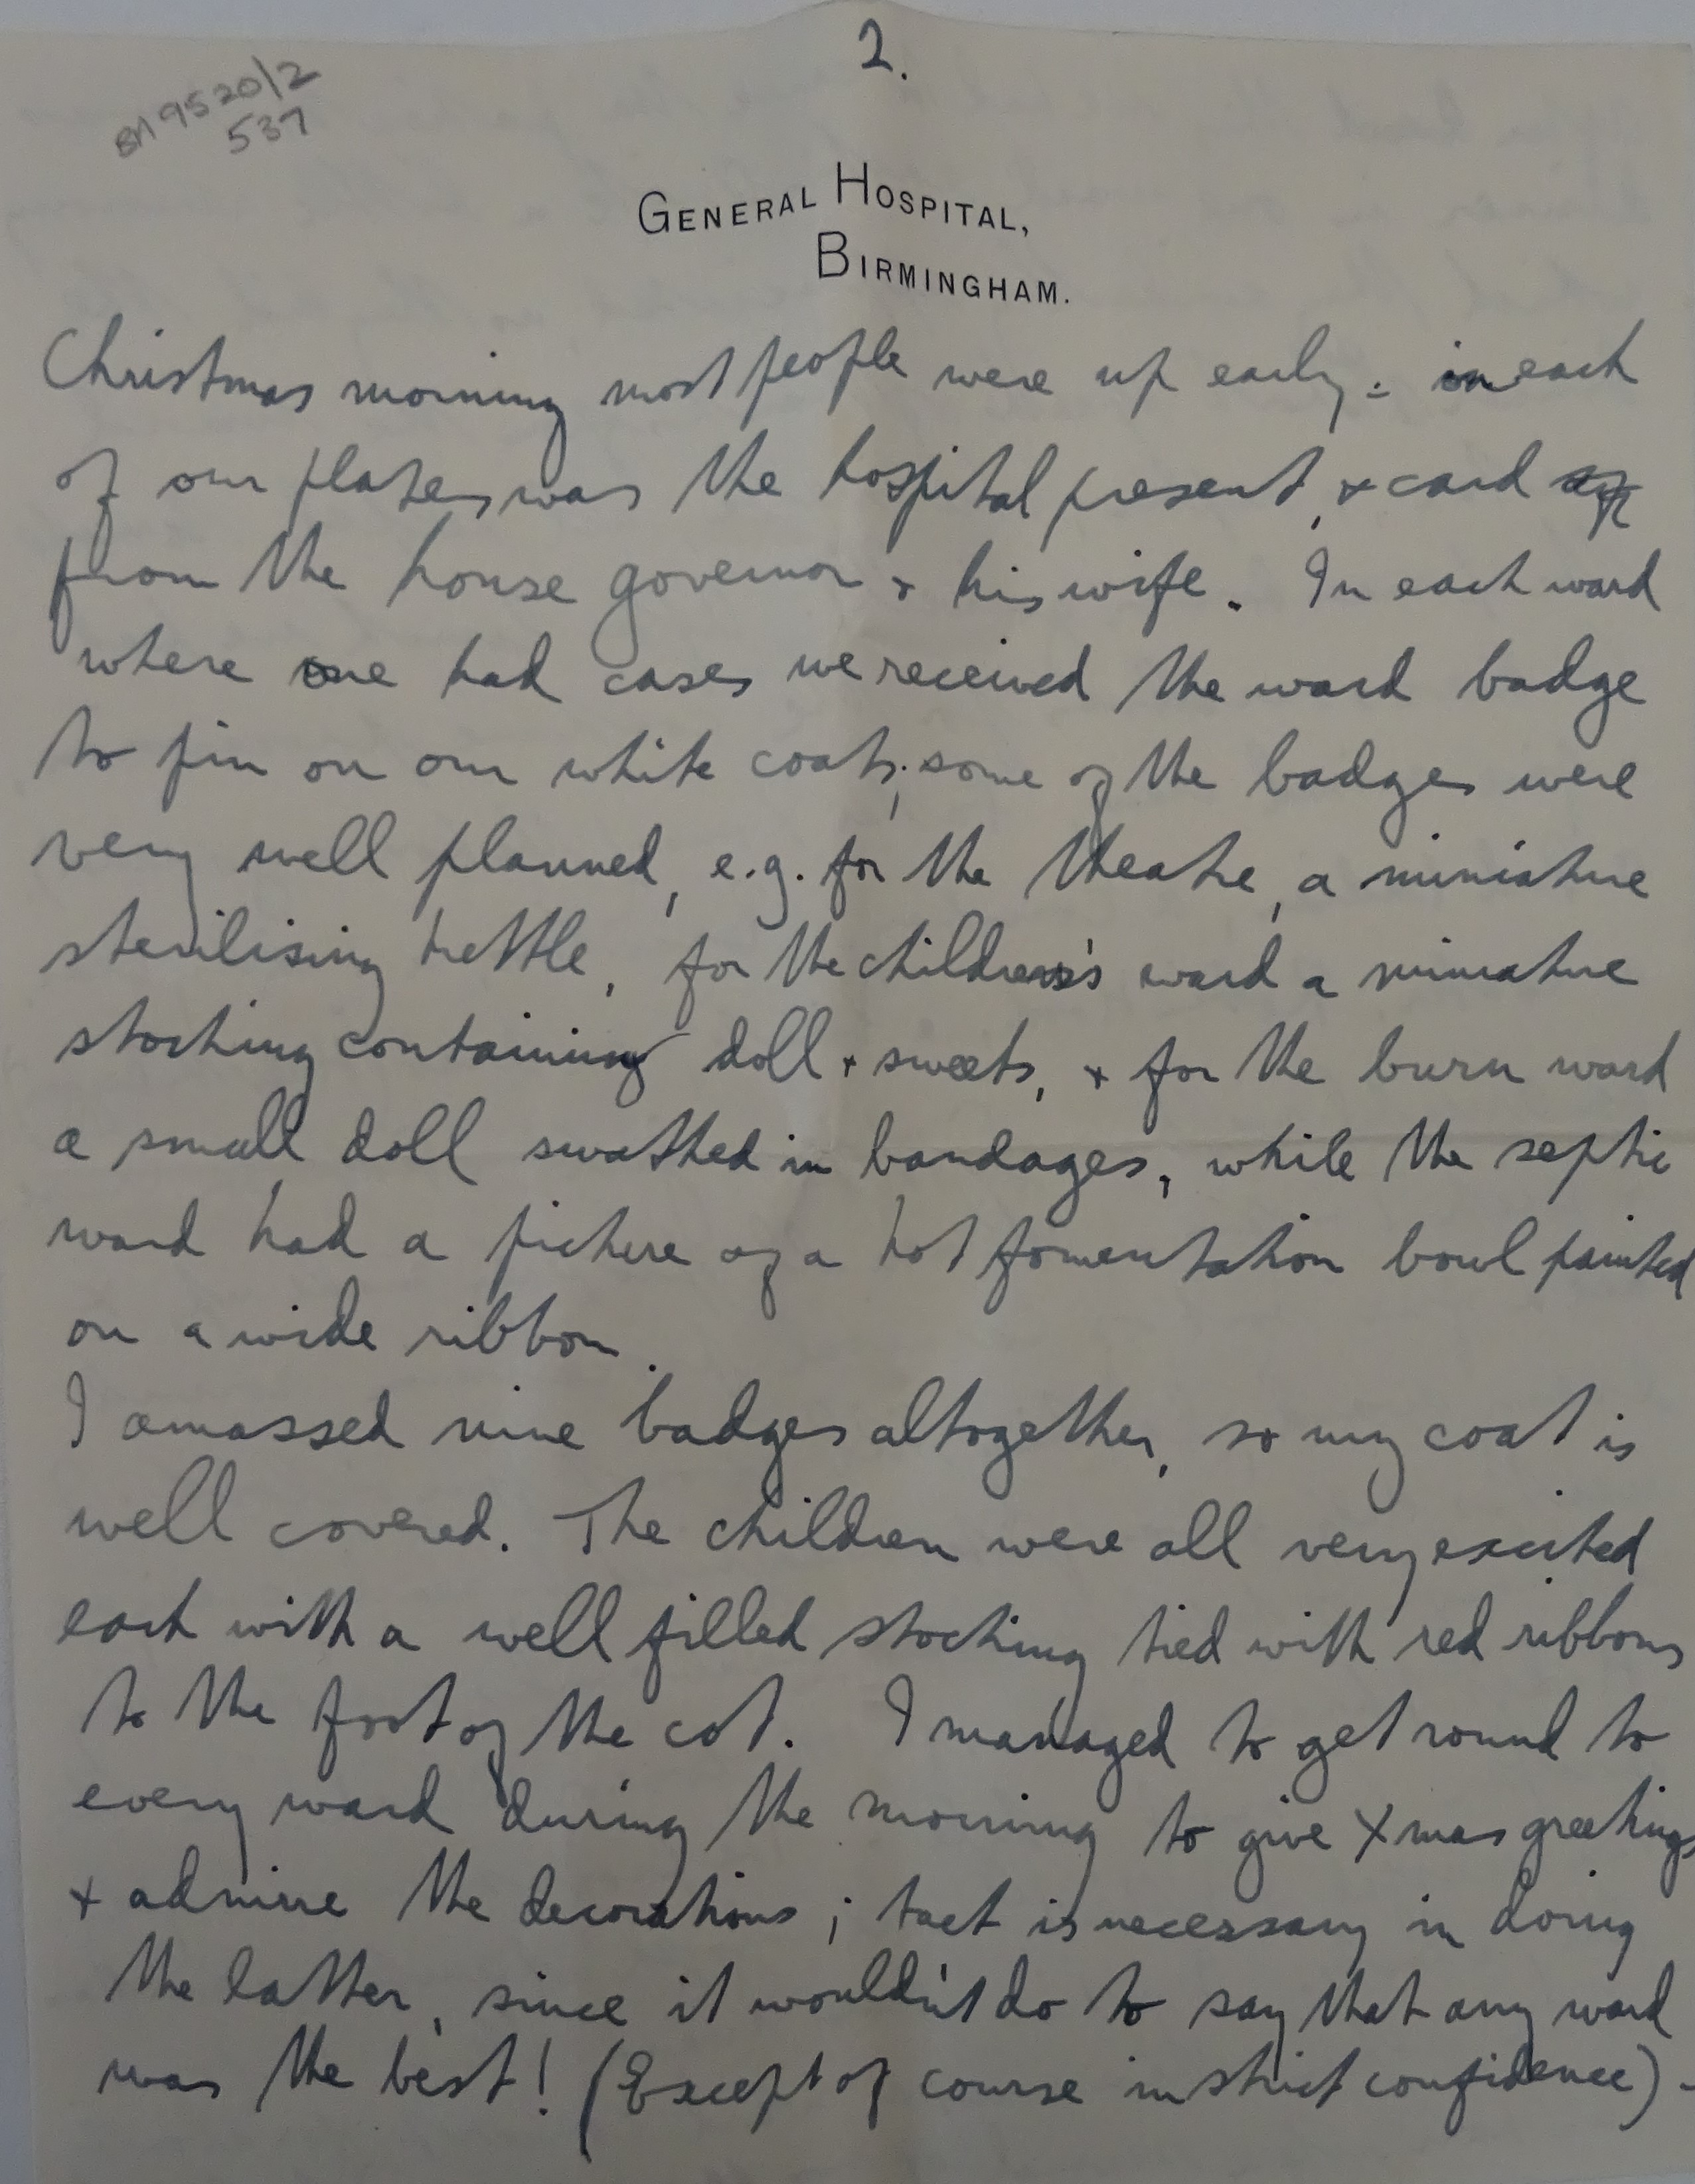 2.
BA 9520/2
537
GENERAL HOSPITAL,
BIRMINGHAM.
Christmas morning most people were up early: on each
of our plates was the hospital present, + card
from the house governor + his wife. In each ward
where one had cases we received the ward badge
to pin on our white coats; some of the badges were
very well planned, e.g. for the theatre, a miniature
sterilising kettle, for the children's ward a miniature
stocking containing doll + sweets, + for the burn ward
a small doll swathed in bandages, while the septic
ward had a picture of a hot fomentation bowl painted
on a wide ribbon.
I amassed nine badges altogether, so my coat is
well covered. The children were all very excited
each with a well filled stocking tied with red ribbons
to the foot of the cot. I managed to get round to
every ward during the morning to give Xmas greetings
+ admire the decorations; tact is necessary in doing
the latter, since it wouldn't do to say that any ward
was the best! (Except of course in strict confidence).